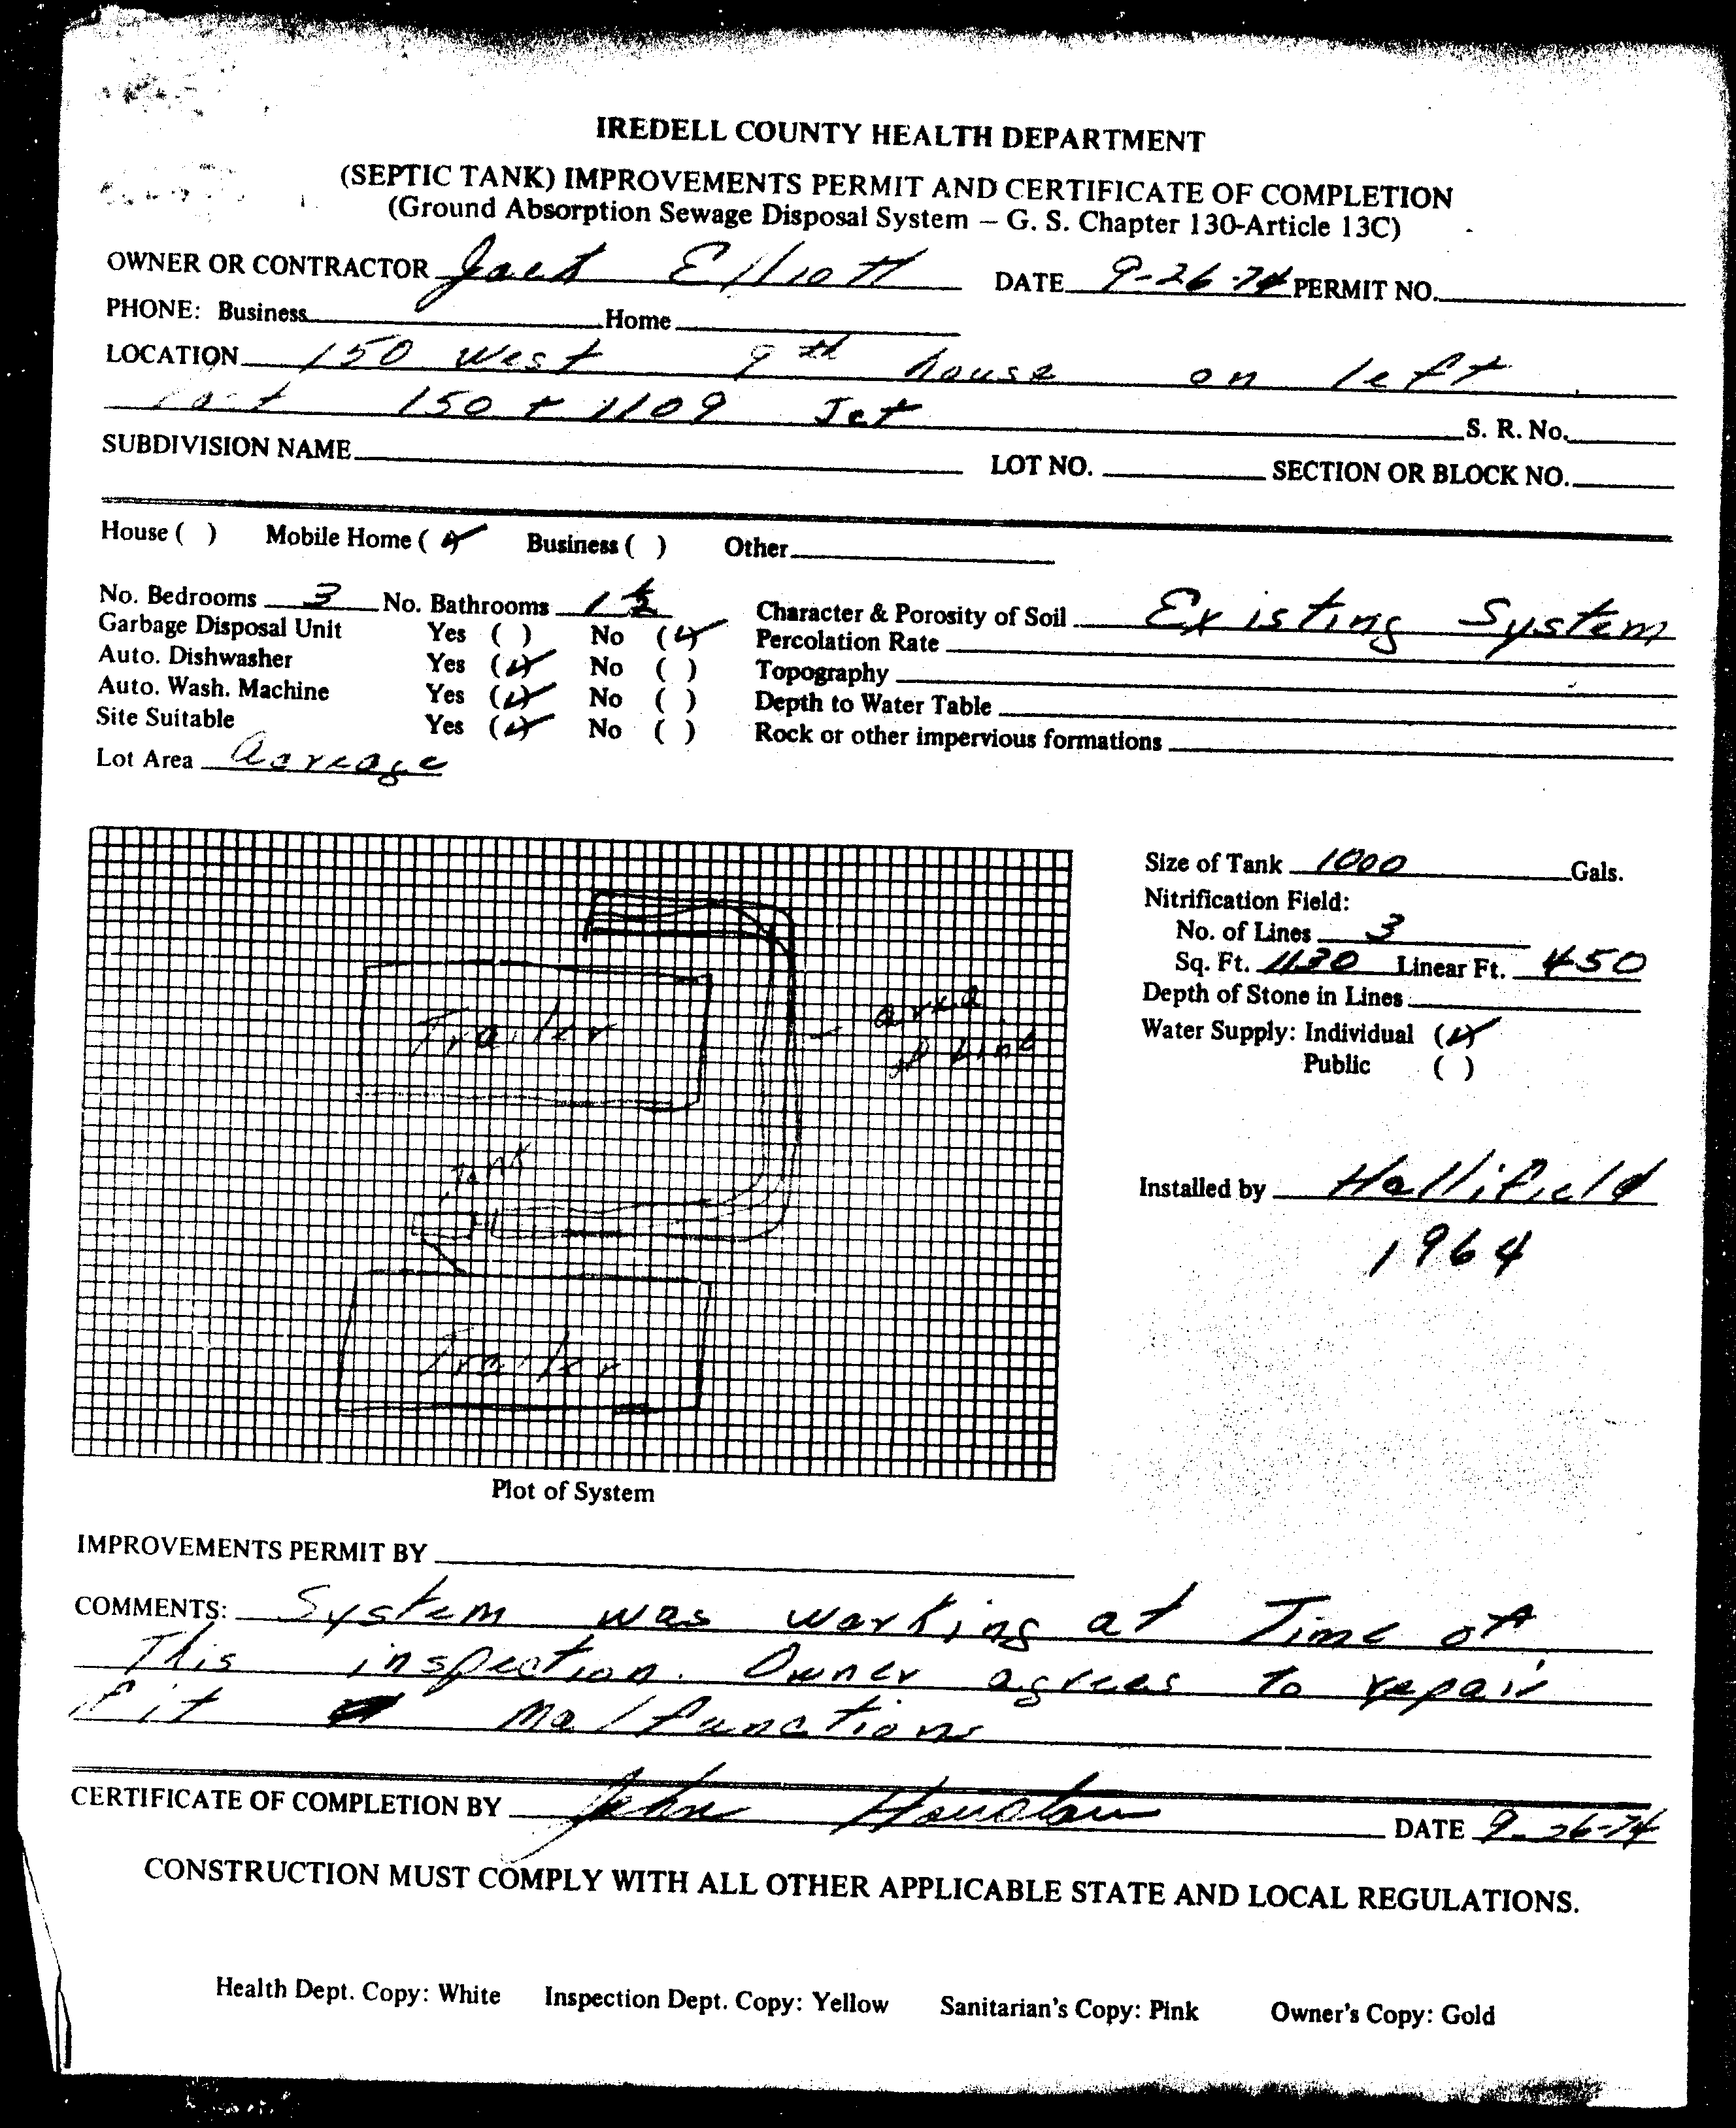 IREDELL COUNTY HEALTH DEPARTMENT
(SEPTIC TANK) IMPROVEMENTS PERMIT AND CERTIFICATE OF COMPLETION
(Ground Absorption Sewage Disposal System – G. S. Chapter 130-Article 13C)
OWNER OR CONTRACTOR Jack Elliott DATE 9-26-74 PERMIT NO.
PHONE: Business Home
LOCATION 150 West 9th house on left
Past 150 + 1109 Jct S. R. No.
SUBDIVISION NAME LOT NO. SECTION OR BLOCK NO.
House ( ) Mobile Home (✓) Business ( ) Other
No. Bedrooms 3 No. Bathrooms 1 ½ Character & Porosity of Soil Existing System
Garbage Disposal Unit Yes ( ) No (✓) Percolation Rate
Auto. Dishwasher Yes (✓) No ( ) Topography
Auto. Wash. Machine Yes (✓) No ( ) Depth to Water Table
Site Suitable Yes (✓) No ( ) Rock or other impervious formations
Lot Area acreage
Size of Tank 1000 Gals.
Nitrification Field:
No. of Lines 3
Sq. Ft. Linear Ft. 450
Depth of Stone in Lines
Water Supply: Individual (✓)
Public ( )
Trailer
area
of line
Tank
Trailer
Installed by Hallifield
1964
Plot of System
IMPROVEMENTS PERMIT BY
COMMENTS: System was working at Time of
This inspection. Owner agrees to repair
if it malfunctions
CERTIFICATE OF COMPLETION BY John DATE 9-26-74
CONSTRUCTION MUST COMPLY WITH ALL OTHER APPLICABLE STATE AND LOCAL REGULATIONS.
Health Dept. Copy: White Inspection Dept. Copy: Yellow Sanitarian's Copy: Pink Owner's Copy: Gold